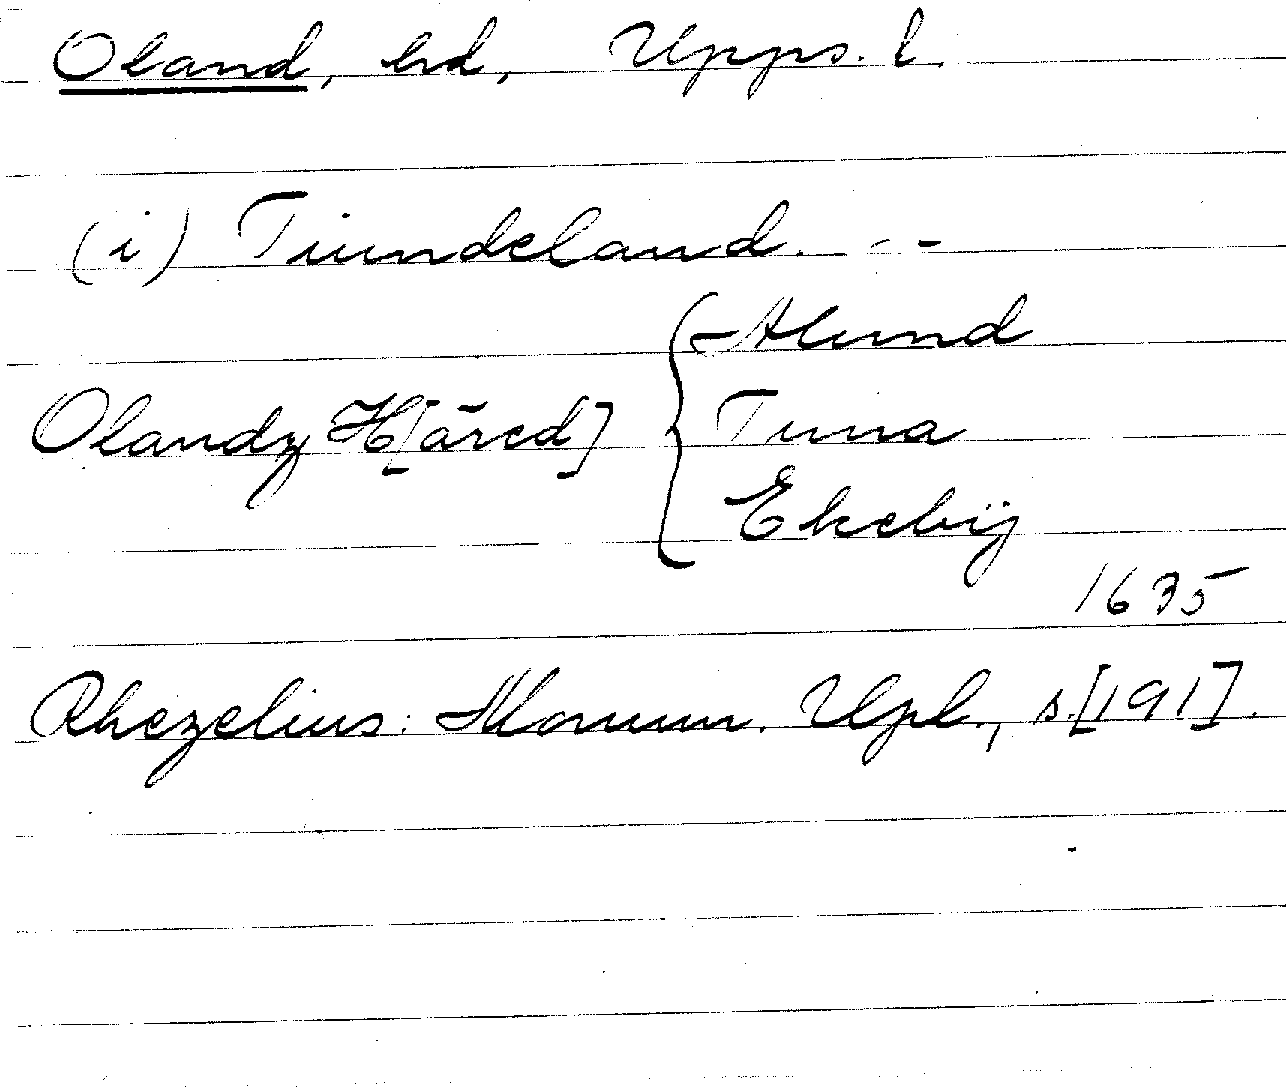 Oland, hd, Upps. l.
(i) Tiundeland. - -
Alund
Olandz H[äred] { Tuna
Ekebÿ
1635
Rhezelius: Monum. Upl., s.[191].